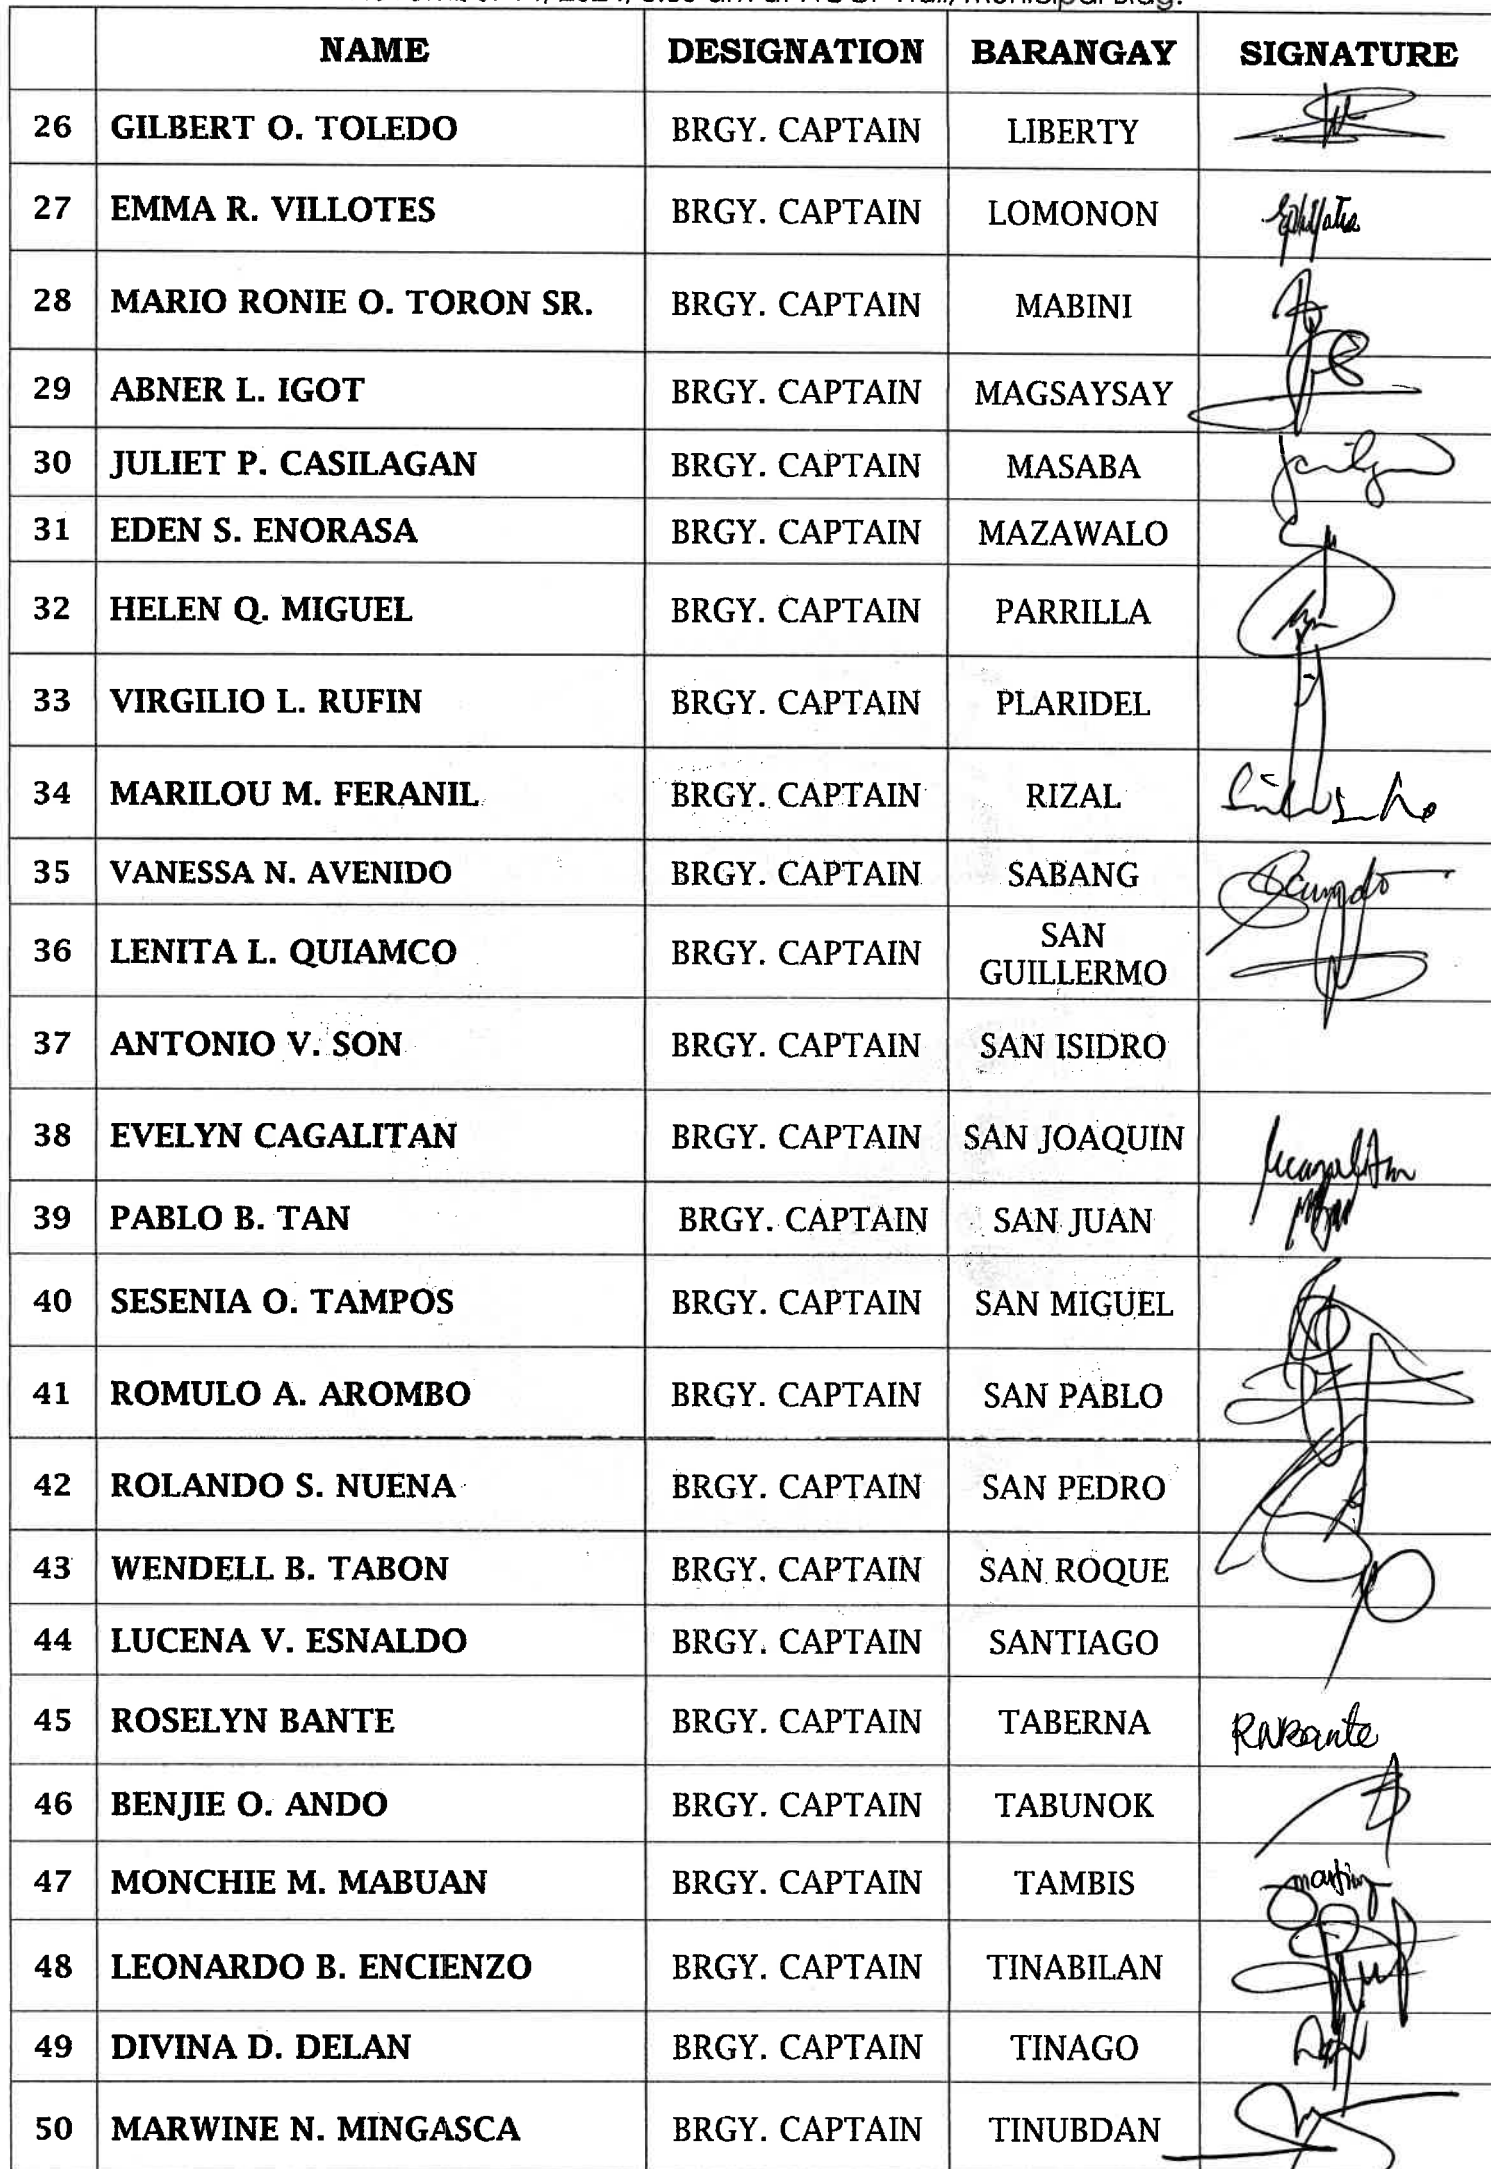 Municipal Bldg.
NAME DESIGNATION BARANGAY SIGNATURE
26 GILBERT O. TOLEDO BRGY. CAPTAIN LIBERTY
27 EMMA R. VILLOTES BRGY. CAPTAIN LOMONON
28 MARIO RONIE O. TORON SR. BRGY. CAPTAIN MABINI
29 ABNER L. IGOT BRGY. CAPTAIN MAGSAYSAY
30 JULIET P. CASILAGAN BRGY. CAPTAIN MASABA
31 EDEN S. ENORASA BRGY. CAPTAIN MAZAWALO
32 HELEN Q. MIGUEL BRGY. CAPTAIN PARRILLA
33 VIRGILIO L. RUFIN BRGY. CAPTAIN PLARIDEL
34 MARILOU M. FERANIL BRGY. CAPTAIN RIZAL
35 VANESSA N. AVENIDO BRGY. CAPTAIN SABANG
36 LENITA L. QUIAMCO BRGY. CAPTAIN SAN
GUILLERMO
37 ANTONIO V. SON BRGY. CAPTAIN SAN ISIDRO
38 EVELYN CAGALITAN BRGY. CAPTAIN SAN JOAQUIN
39 PABLO B. TAN BRGY. CAPTAIN SAN JUAN
40 SESENIA O. TAMPOS BRGY. CAPTAIN SAN MIGUEL
41 ROMULO A. AROMBO BRGY. CAPTAIN SAN PABLO
42 ROLANDO S. NUENA BRGY. CAPTAIN SAN PEDRO
43 WENDELL B. TABON BRGY. CAPTAIN SAN ROQUE
44 LUCENA V. ESNALDO BRGY. CAPTAIN SANTIAGO
45 ROSELYN BANTE BRGY. CAPTAIN TABERNA RNBante
46 BENJIE O. ANDO BRGY. CAPTAIN TABUNOK
47 MONCHIE M. MABUAN BRGY. CAPTAIN TAMBIS
48 LEONARDO B. ENCIENZO BRGY. CAPTAIN TINABILAN
49 DIVINA D. DELAN BRGY. CAPTAIN TINAGO
50 MARWINE N. MINGASCA BRGY. CAPTAIN TINUBDAN